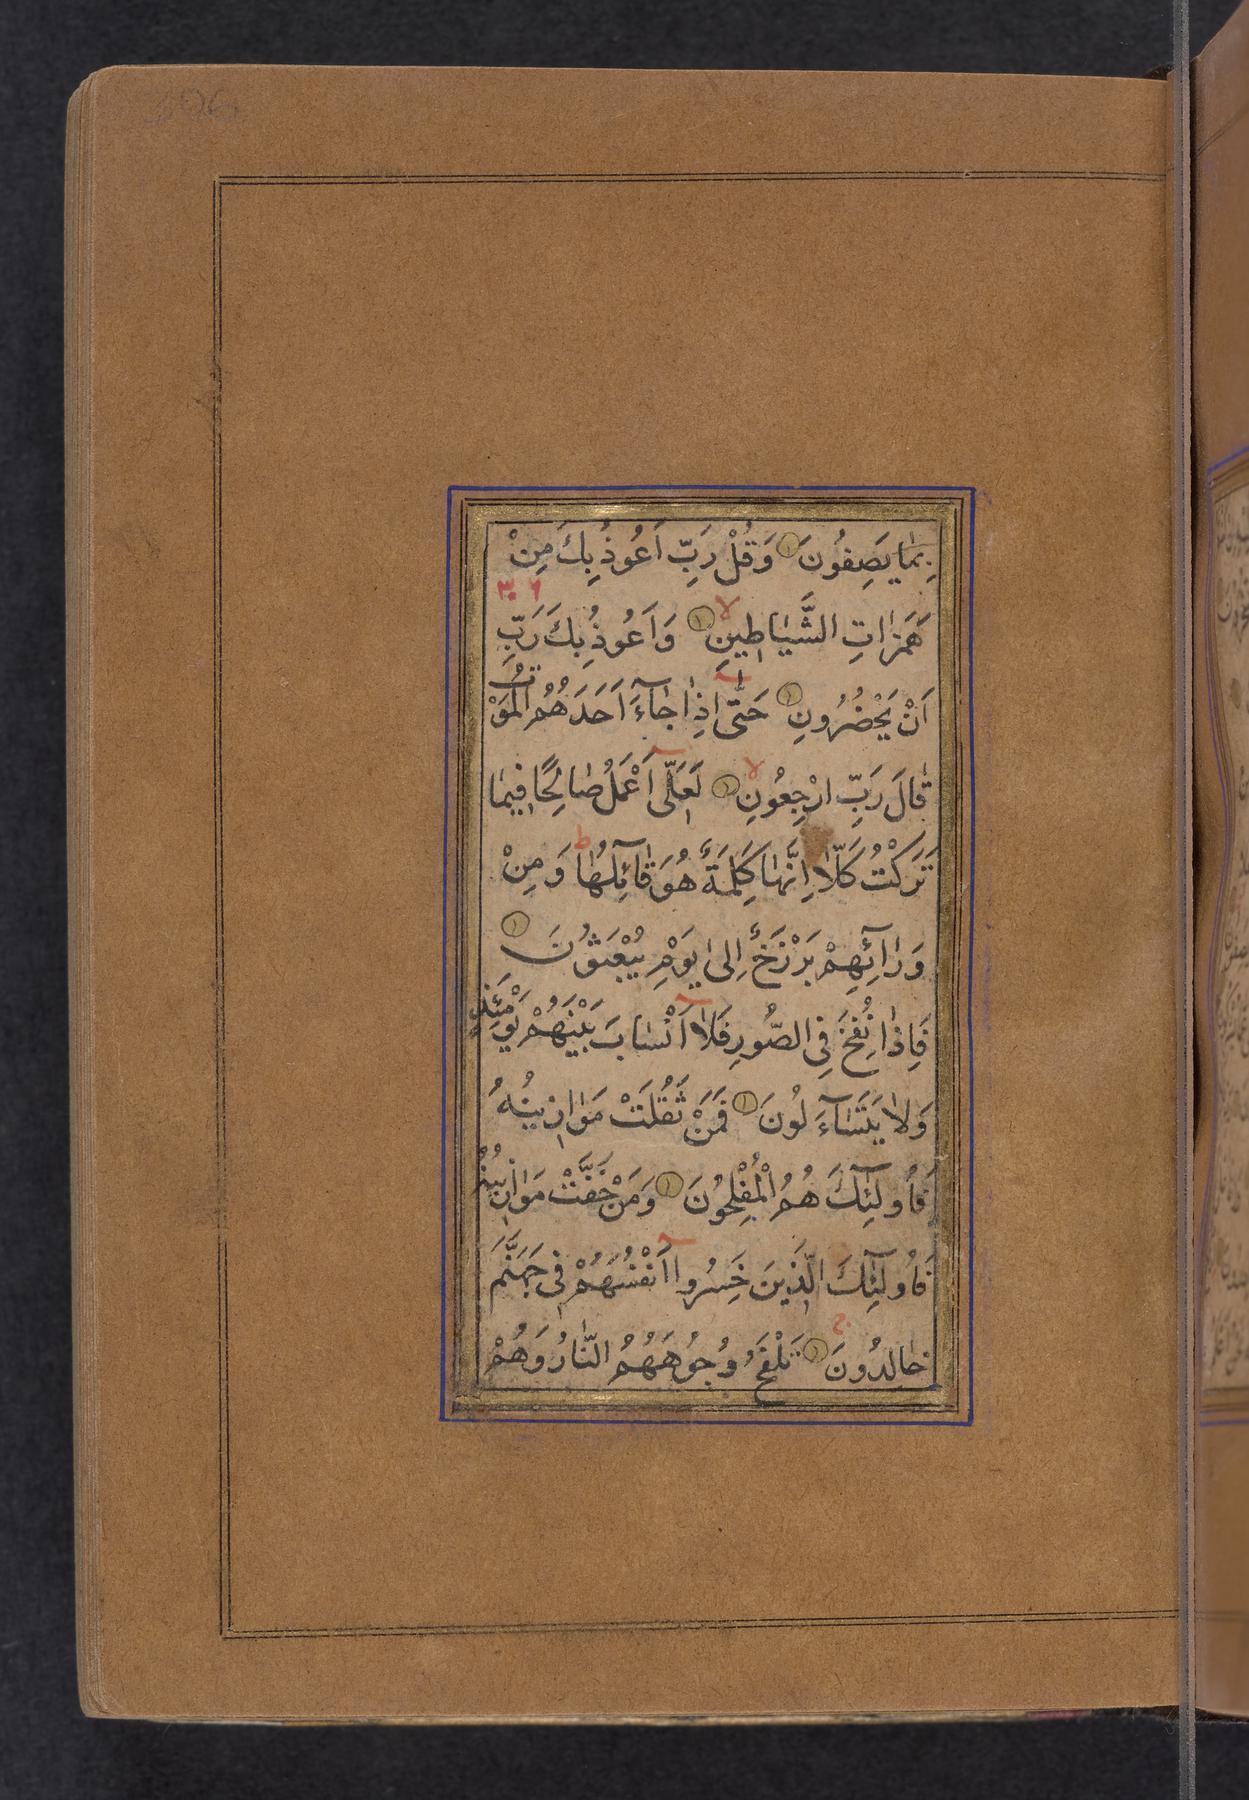 بِمَا يَصِفُونَ وَقُلْ رَبِّ اَعُوذُ بِكَ مِنْ
هَمَزَاتِ الشَّيَاطِينِ وَاَعُوذُ بِكَ رَبِّ
اَنْ يَحْضُرُونِ حَتّٰى اِذَا جَآءَ اَحَدَهُمُ الْمَوْتُ
قَالَ رَبِّ ارْجِعُونِ لَعَلّٖى اَعْمَلُ صَالِحًا فِيمَا
تَرَكْتُ كَلَّا اِنَّهَا كَلِمَةٌ هُوَ قَآئِلُهَا وَمِنْ
وَرَآئِهِمْ بَرْزَخٌ اِلٰى يَوْمِ يُبْعَثُونَ
فَاِذَا نُفِخَ فِى الصُّورِ فَلَا اَنْسَابَ بَيْنَهُمْ يَوْمَئِذٍ
وَلَا يَتَسَآءَلُونَ فَمَنْ ثَقُلَتْ مَوَازِينُهُ
فَاُولٰٓئِكَ هُمُ الْمُفْلِحُونَ وَمَنْ خَفَّتْ مَوَازِينُهُ
فَاُولٰٓئِكَ الَّذِينَ خَسِرُوا اَنْفُسَهُمْ فِى جَهَنَّمَ
خَالِدُونَ تَلْفَحُ وُجُوهَهُمُ النَّارُ وَهُمْ